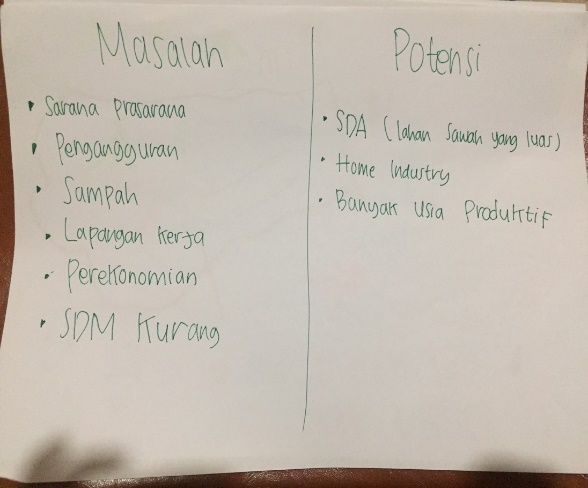 Masalah
• Sarana Prasarana
• Pengangguran
• Sampah
• Lapangan Kerja
• Perekonomian
• SDM Kurang
Potensi
• SDA (lahan sawah yang luas)
• Home Industry
• Banyak Usia Produktif